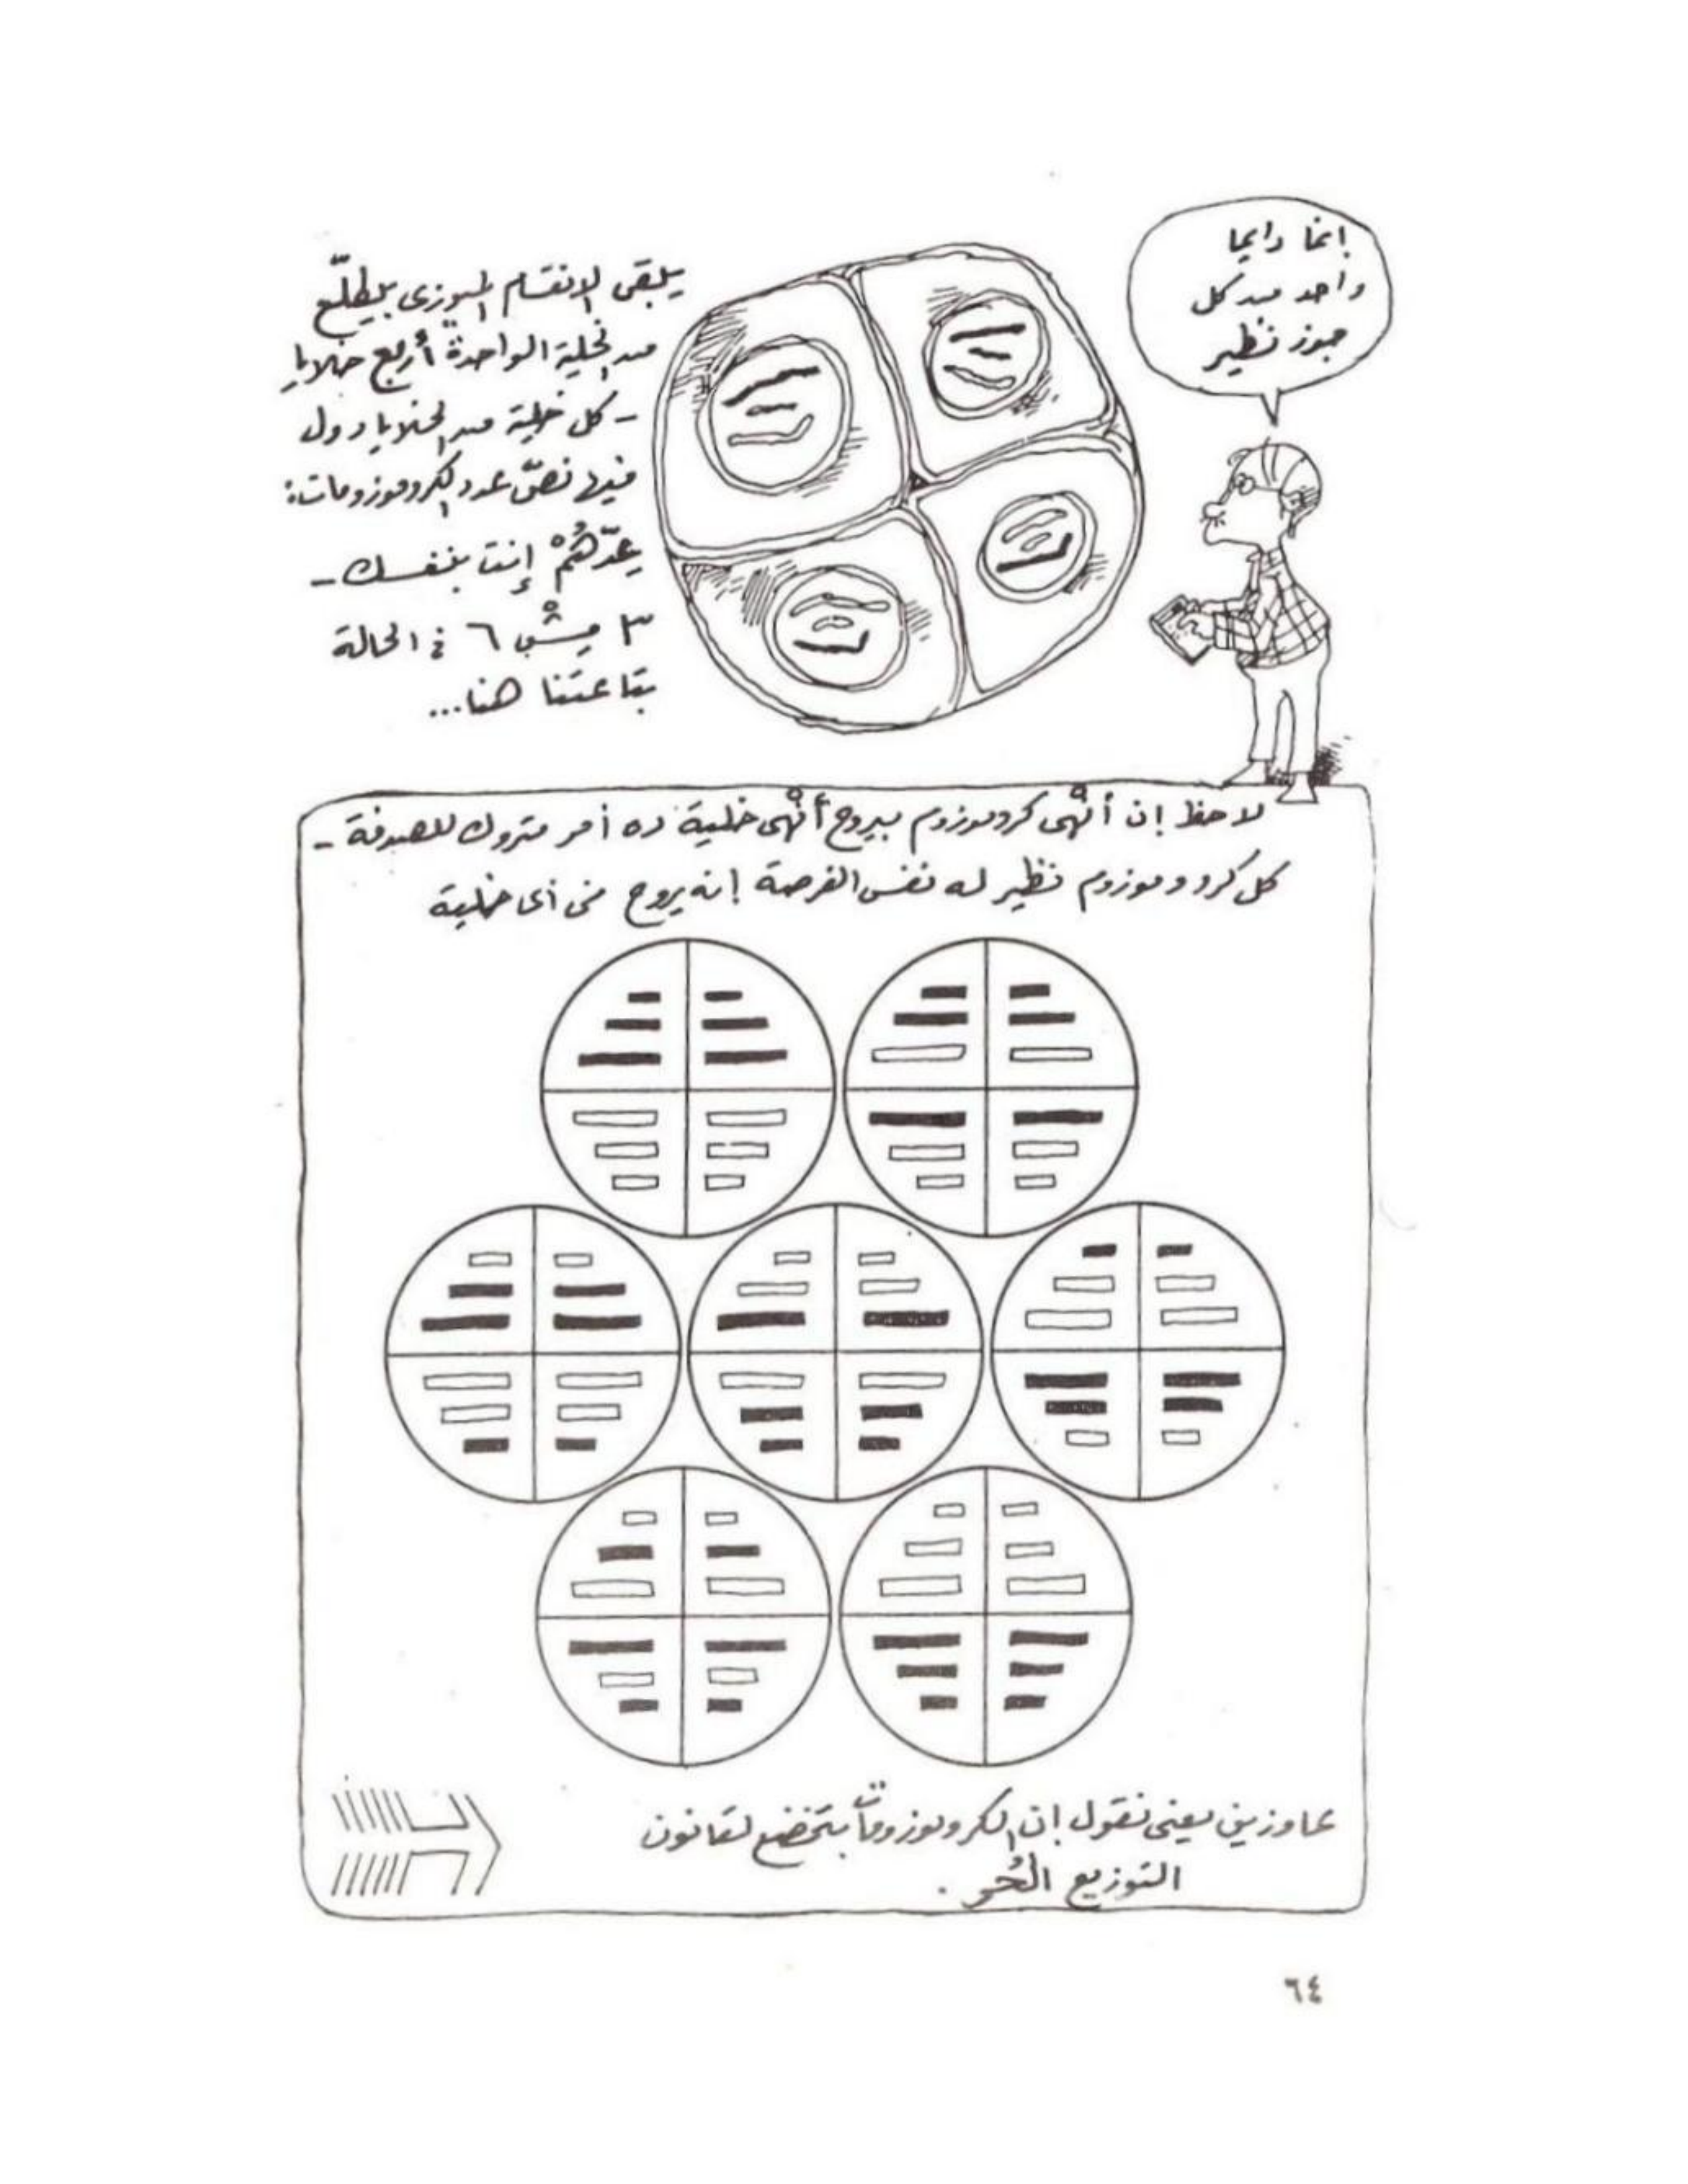 يبقى الإنقسام الميوزى بيطلّع
من الخلية الواحدة أربع خلايا
- كل خلية من الخلايا دول
فيها نصّ عدد الكروموزومات:
عِدّهُمْ إنت بنفسك -
٣ مِشْ ٦ فى الحالة
بتاعتنا هنا...
إنما دايما
واحد من كل
جوز نظير
لاحظ إن أنْهى كروموزوم بيروح أنْهى خلية ده أمر متروك للصدفة -
كل كروموزوم نظير له نفس الفرصة إنه يروح فى أى خلية
عاوزين يعنى نقول إن الكروموزومات بتخضع لقانون
التوزيع الحُر.
٦٤